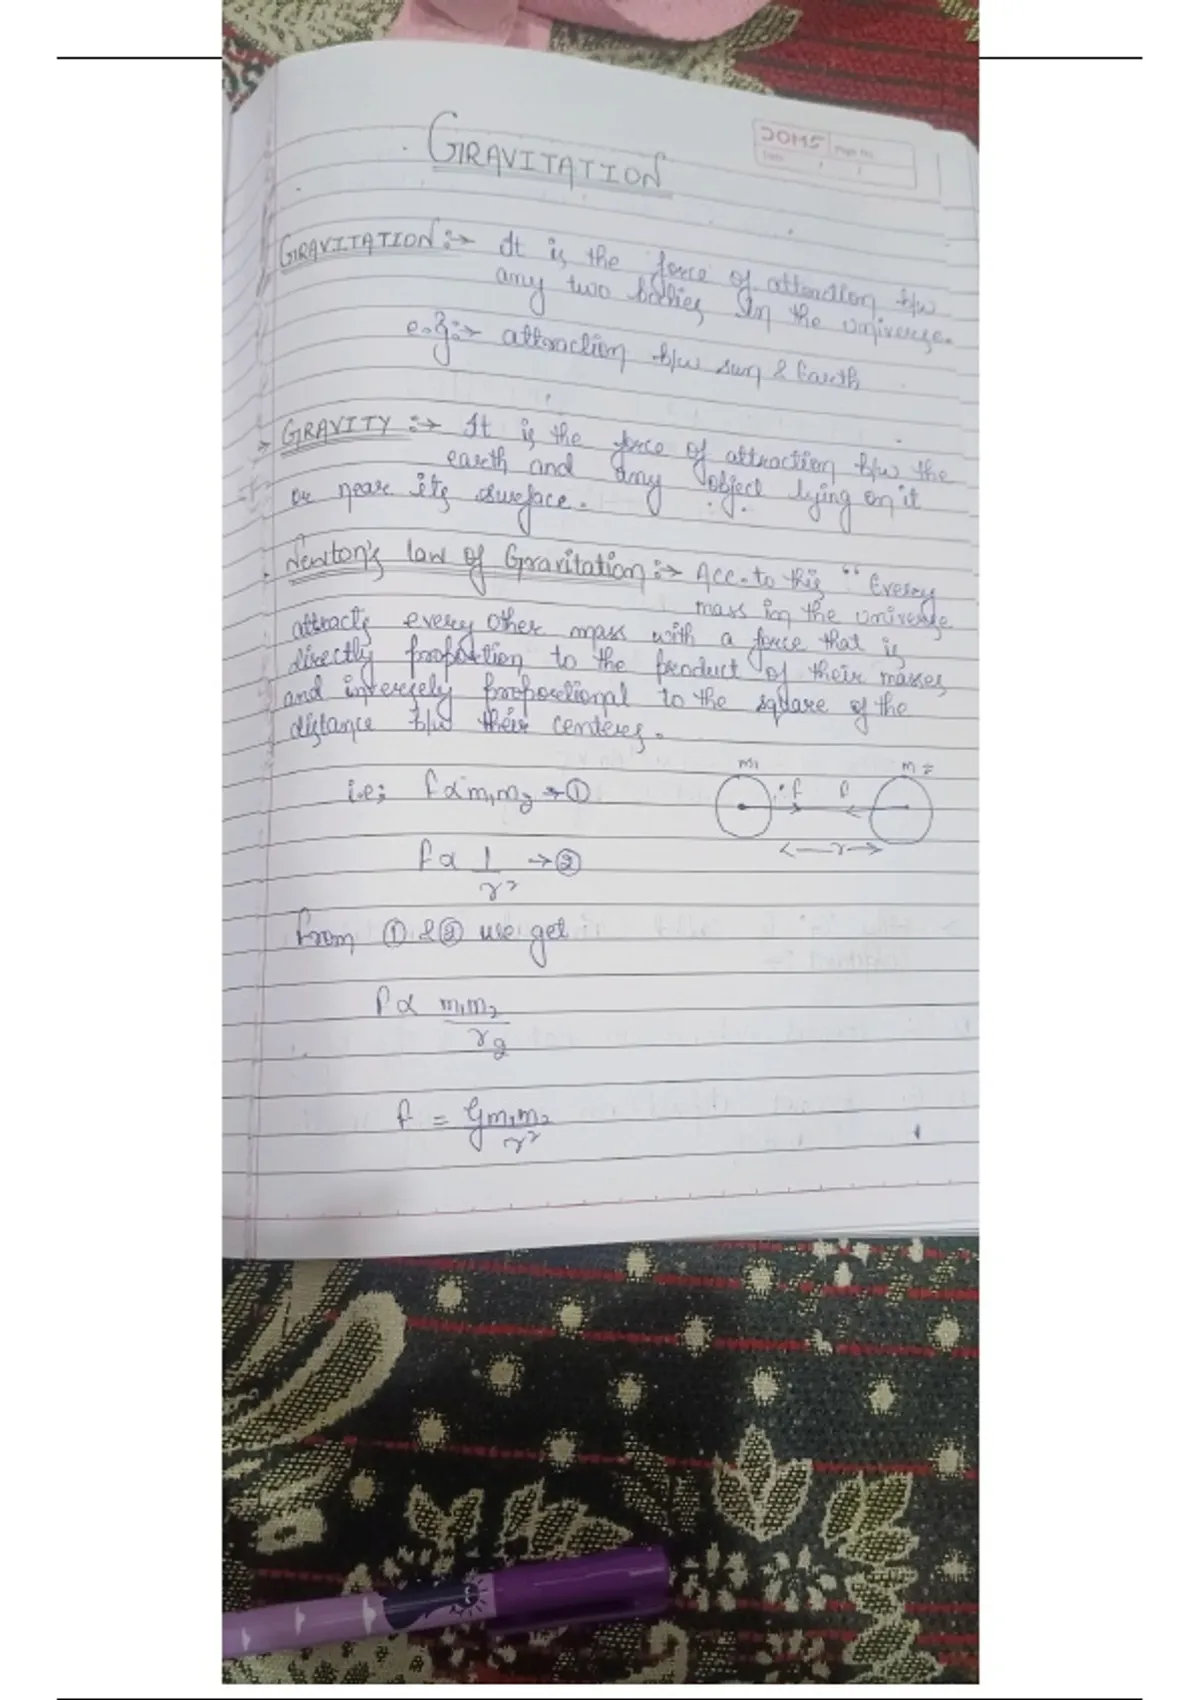 GRAVITATION
DOMS Page No.
Date / /
GRAVITATION :→ It is the force of attraction b/w
any two bodies in the universe.
e.g:→ attraction b/w sun & Earth
GRAVITY :→ It is the force of attraction b/w the
earth and any object lying on it
or near its surface.
Newton's law of Gravitation :→ Acc. to this "Every
mass in the universe
attracts every other mass with a force that is
directly proportion to the product of their masses
and inversely proportional to the square of the
distance b/w their centeres.
m1 m2
i.e; f α m1m2 → ①
f f
← r →
f α 1/r² → ②
from ① & ② we get
f α m1m2/r2
f = Gm1m2/r²